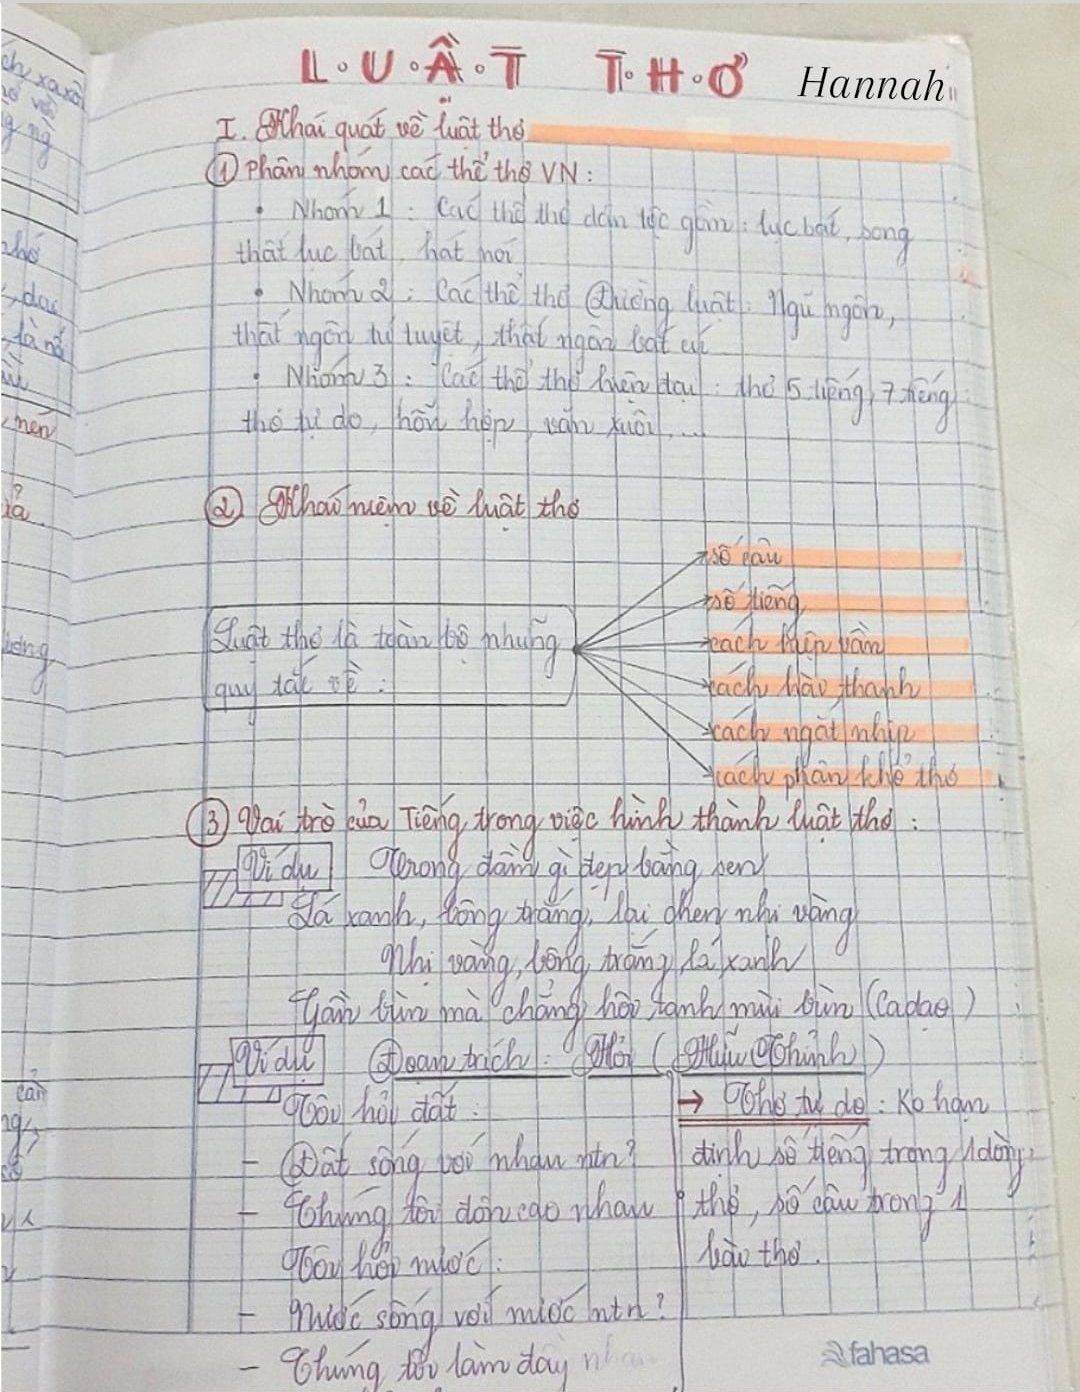 L.U.Ậ.T T.H.Ơ Hannah
I. Khái quát về luật thơ
① Phân nhóm các thể thơ VN:
• Nhóm 1 : Các thể thơ dân tộc gồm : lục bát, song
thất lục bát, hát nói
• Nhóm 2 : Các thể thơ Đường luật : Ngũ ngôn,
thất ngôn tứ tuyệt, thất ngôn bát cú
• Nhóm 3 : Các thể thơ hiện đại : thơ 5 tiếng, 7 tiếng
thơ tự do, hỗn hợp, văn xuôi,...
② Khái niệm về luật thơ
Luật thơ là toàn bộ những
quy tắc về :
số câu
số tiếng
cách hiệp vần
cách hài thanh
cách ngắt nhịp
cách phân khổ thơ
③ Vai trò của Tiếng trong việc hình thành luật thơ :
Ví dụ Trong đầm gì đẹp bằng sen
Lá xanh, bông trắng, lại chen nhị vàng
Nhị vàng, bông trắng, lá xanh
Gần bùn mà chẳng hôi tanh mùi bùn (Ca dao)
Ví dụ Đoạn trích : Hỏi (Hữu Thỉnh)
Tôi hỏi đất :
- Đất sống với nhau ntn?
- Chúng tôi tôn cao nhau
Tôi hỏi nước :
- Nước sống với nước ntn?
- Chúng tôi làm đầy nhau
→ Thơ tự do : Ko hạn
định số tiếng trong 1 dòng
thơ, số câu trong 1
bài thơ.
fahasa